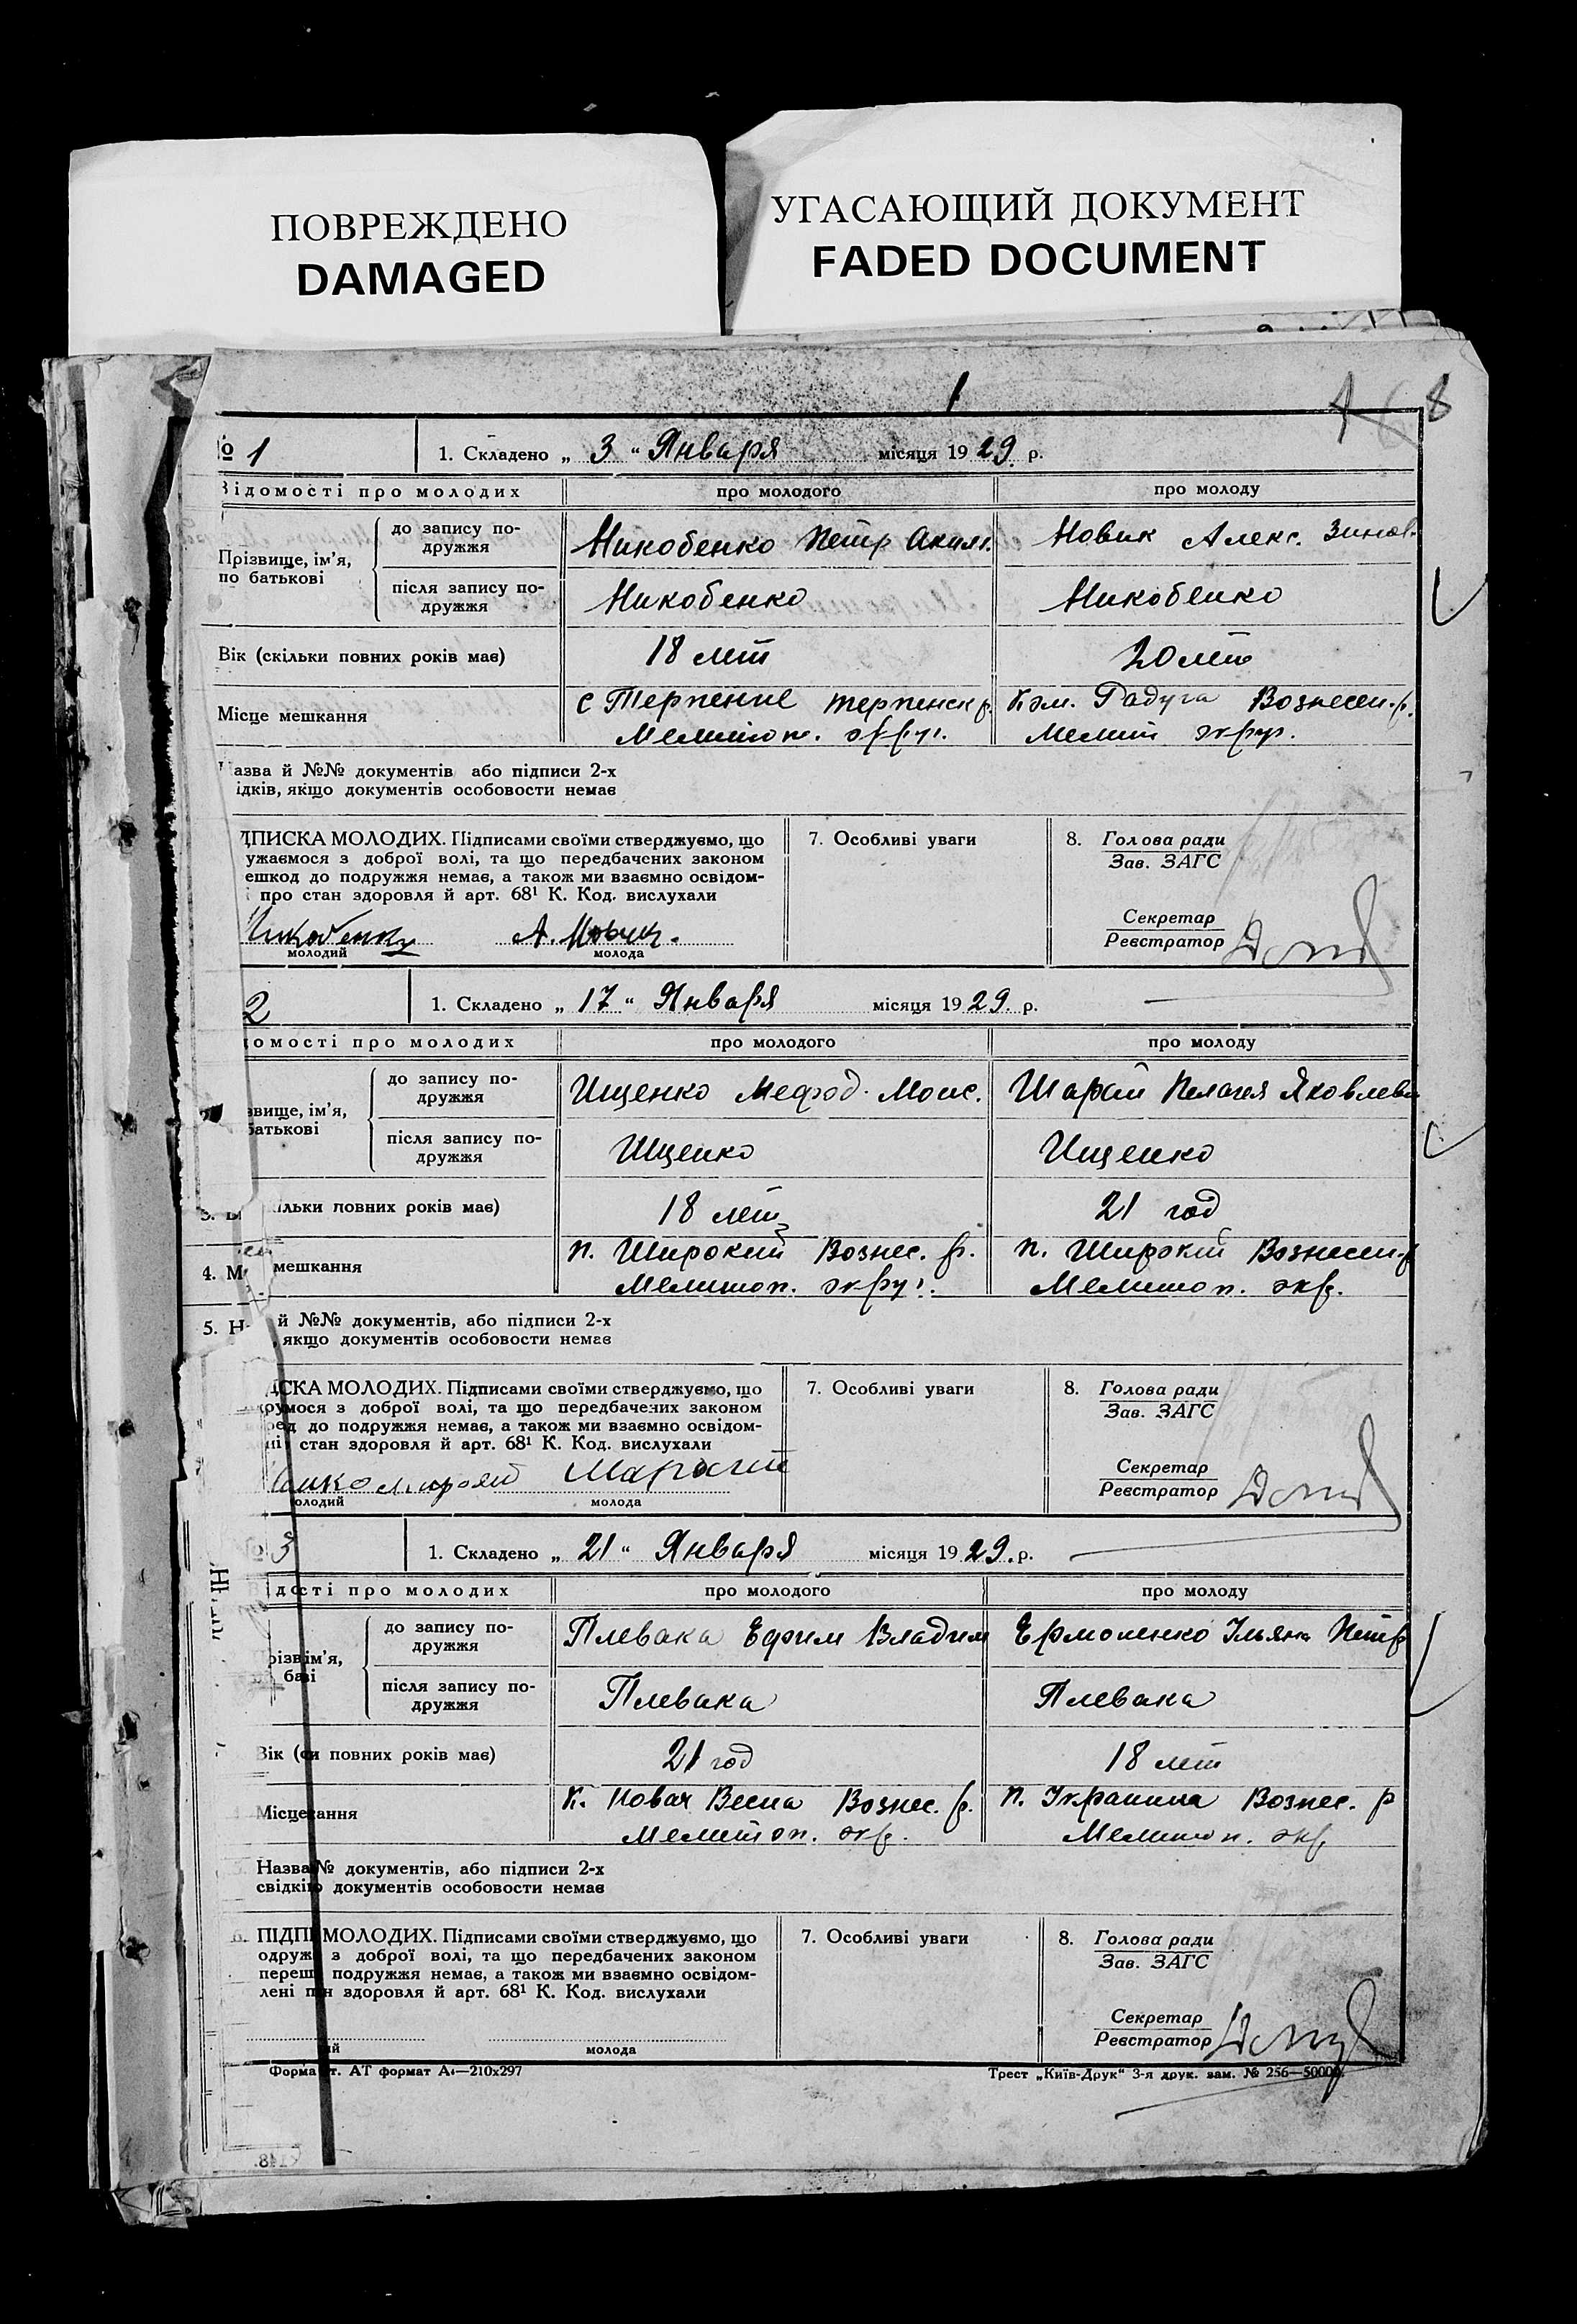 ПОВРЕЖДЕНО
DAMAGED
УГАСАЮЩИЙ ДОКУМЕНТ
FADED DOCUMENT
1
8
№ 1 1. Складено „ 3 “ Января місяця 1929 р.
Відомості про молодих про молодого про молоду
Прізвище, ім’я, по батькові
до запису подружжя Никобенко Петр Аким. Новик Алекс. Зинов.
після запису подружжя Никобенко Никобенко
Вік (скільки повних років має) 18 лет 20 лет
Місце мешкання с Терпение терпенск р. Ком. Радуга Вознесен. р.
Мелитоп. округ. Мелит округ.
азва й №№ документів або підписи 2-х
ідків, якщо документів особовости немає
ДПИСКА МОЛОДИХ. Підписами своїми стверджуємо, що
ужаємося з доброї волі, та що передбачених законом
ешкод до подружжя немає, а також ми взаємно освідом-
про стан здоровля й арт. 68¹ К. Код. вислухали
7. Особливі уваги
8. Голова ради
Зав. ЗАГС
Секретар
Реєстратор
Никобенко А. Новик.
молодий молода
2 1. Складено „ 17 “ Января місяця 1929. р.
домості про молодих про молодого про молоду
звище, ім’я,
батькові
до запису подружжя Ищенко Мефод. Моис. Шарай Пелагея Яковлевн
після запису подружжя Ищенко Ищенко
льки повних років має) 18 лет 21 год
4. М мешкання п. Широкий Вознес. р. п. Широкий Вознесен. р
Мелитоп. округ. Мелитоп. окр.
5. Н й №№ документів, або підписи 2-х
, якщо документів особовости немає
ИСКА МОЛОДИХ. Підписами своїми стверджуємо, що
румося з доброї волі, та що передбачених законом
до подружжя немає, а також ми взаємно освідом-
ні стан здоровля й арт. 68¹ К. Код. вислухали
7. Особливі уваги
8. Голова ради
Зав. ЗАГС
Секретар
Реєстратор
олодий молода
№ 3 1. Складено „ 21 “ Января місяця 1929. р.
дості про молодих про молодого про молоду
різвім’я,
баві
до запису подружжя Плевака Ефим Владим Ермоленко Ульяна Петр
після запису подружжя Плевака Плевака
Вік (и повних років має) 21 год 18 лет
Місцекання к. Новая Весна Вознес. р. п. Украинка Вознес. р
Мелитоп. окр. Мелитоп. окр
Назва№ документів, або підписи 2-х
свідкію документів особовости немає
6. ПІДПИМОЛОДИХ. Підписами своїми стверджуємо, що
одруж з доброї волі, та що передбачених законом
переш подружжя немає, а також ми взаємно освідом-
лені пн здоровля й арт. 68¹ К. Код. вислухали
7. Особливі уваги
8. Голова ради
Зав. ЗАГС
Секретар
Реєстратор
ий молода
Форма т. АТ формат А4—210х297
Трест „Київ-Друк“ 3-я друк. зам. № 256—50000.